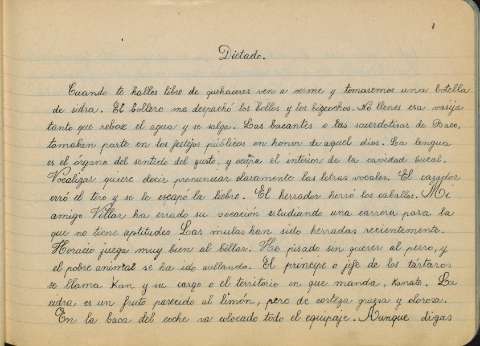 1
Dictado.
Cuando te halles libre de quehaceres ven a verme y tomaremos una botella
de sidra. El bollero me despachó los bollos y los bizcochos. No llenes esa vasija
tanto que rebose el agua y se salga. Las bacantes o las sacerdotisas de Baco,
tomaban parte en los festejos públicos en honor de aquel dios. La lengua
es el órgano del sentido del gusto, y ocupa el interior de la cavidad bucal.
Vocalizar quiere decir pronunciar claramente las letras vocales. El cazador
erró el tiro y se le escapó la liebre. El herrador herró los caballos. Mi
amigo Villar ha errado su vocación estudiando una carrera para la
que no tiene aptitudes. Las mulas han sido herradas recientemente.
Horacio juega muy bien al billar. He pisado sin querer al perro, y
el pobre animal se ha ido aullando. El príncipe o jefe de los tártaros
se llama Kan y su cargo o el territorio en que manda, kanato. La
cidra es un fruto parecido al limón, pero de corteza gruesa y olorosa.
En la baca del coche va colocado todo el equipaje. Aunque digas